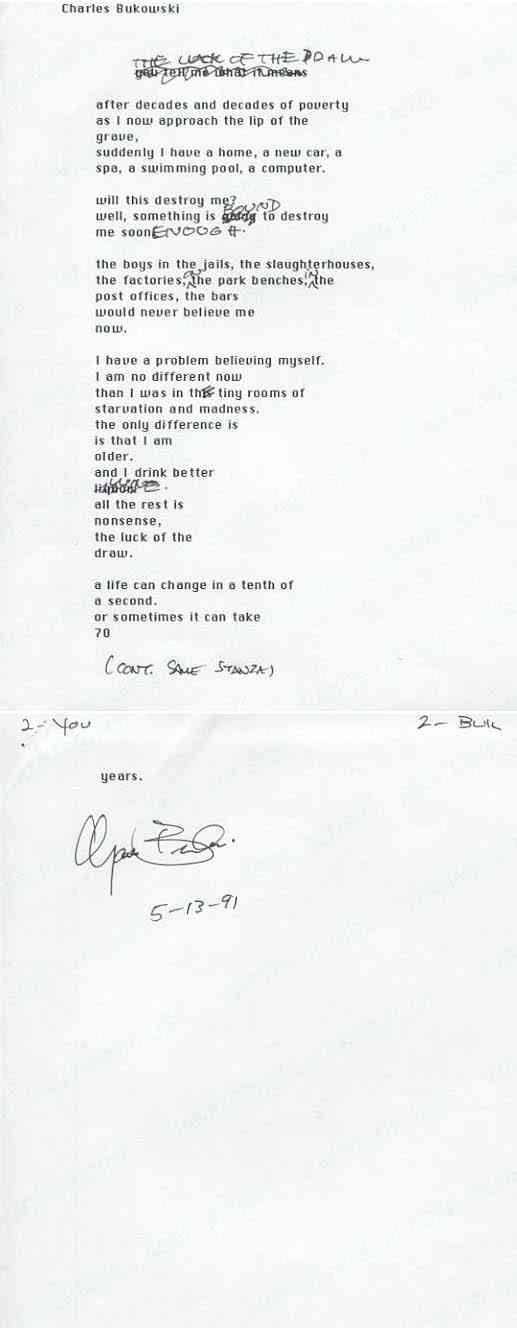 Charles Bukowski
THE LUCK OF THE DRAW
you tell me what it means
after decades and decades of poverty
as I now approach the lip of the
grave,
suddenly I have a home, a new car, a
spa, a swimming pool, a computer.
will this destroy me?
BOUND
well, something is going to destroy
me soon ENOUGH.
the boys in the jails, the slaughterhouses,
ON IN
the factories, the park benches, the
post offices, the bars
would never believe me
now.
I have a problem believing myself.
I am no different now
than I was in the tiny rooms of
starvation and madness.
the only difference is
is that I am
older.
and I drink better
WINE.
all the rest is
nonsense,
the luck of the
draw.
a life can change in a tenth of
a second.
or sometimes it can take
70
(CONT. SAME STANZA)
2- You 2- BUK
years.
5-13-91